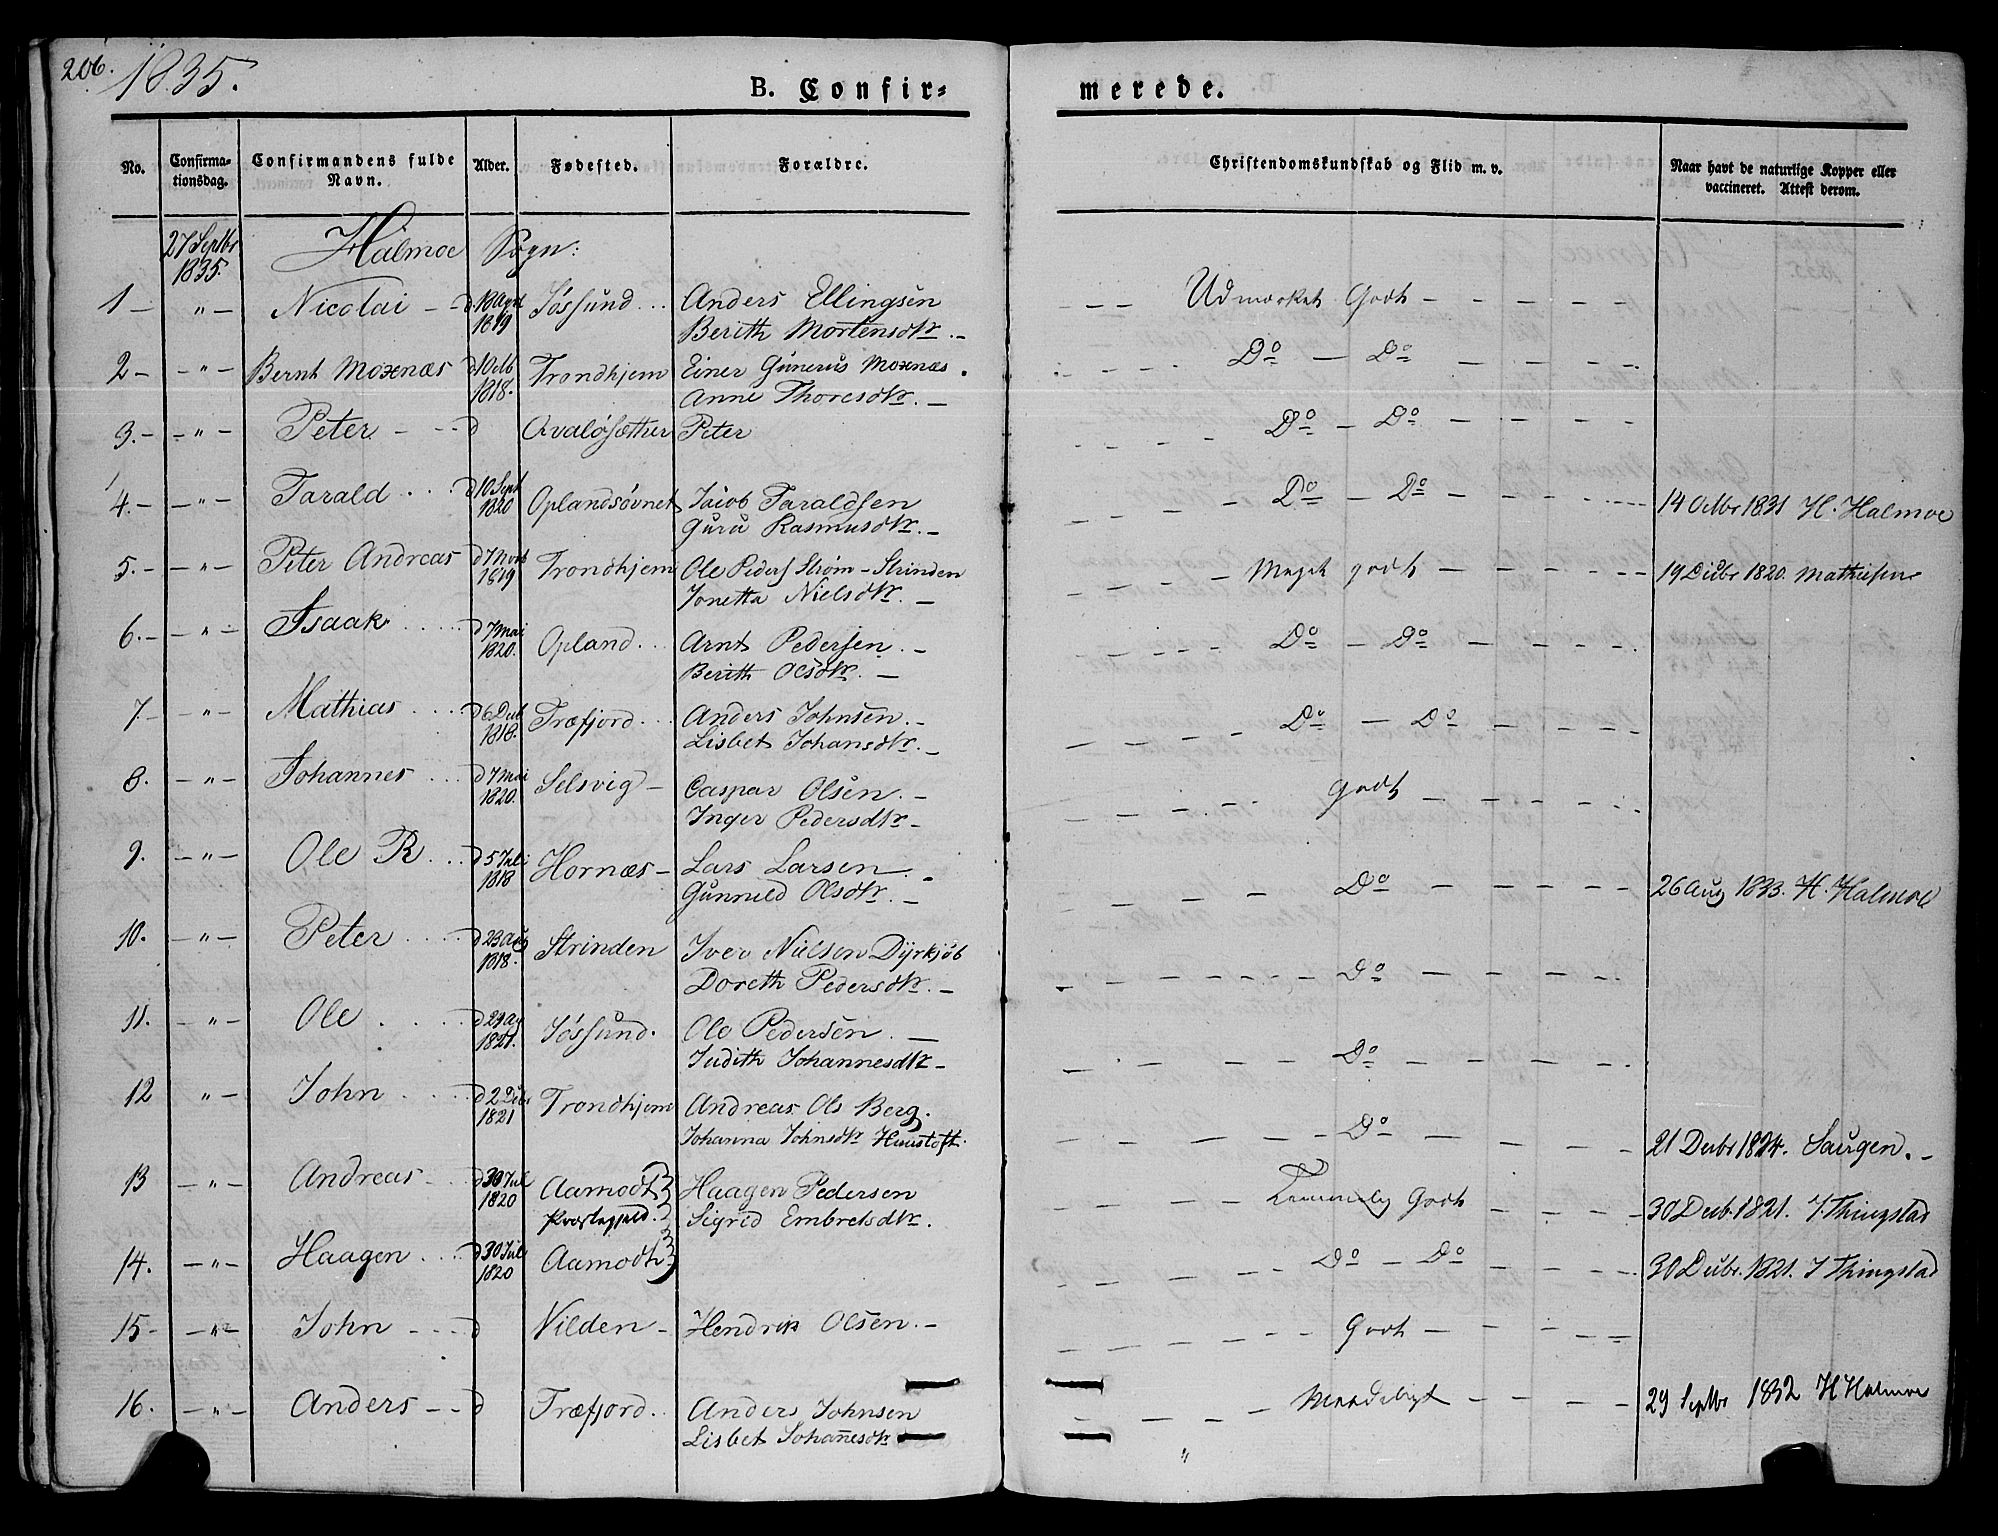 206. 1835.
B. Confir= merede.
No. Confirma-tionsdag. Confirmandens fulde Navn. Alder. Fødested. Forældre. Christendomskundskab og Flid m. v. Naar havt de naturlige Kopper eller vaccineret. Attest derom.
27 Septbr 1835. Halmoe Sogn:
1 — " — Nicolai — d 18 Apr 1819 Søssund... Anders Ellingsen — — Udmærket Godt — — — — —
Berith Mortensdtr. —
2 — — " — Bernt Moxnæs d 10 Octb 1818. Trondhjem Einer Gunerus Moxnæs. Do — Do — — — —
Anne Thoresdtr. —
3. — — " — Peter — d Qvaløsæther Peter Do — Do — — — —
4. — — " — Tarald... d 10 Sept 1820 Oplandsøvnet Jacob Taraldsen — Do — Do — — — — 14 Octbr 1831 H. Halmoe
Guru Rasmusdtr. —
5. — — " — Peter Andreas d 7 Novb 1819 Trondhjem Ole Peders Strøm — Strinden — — — Meget godt — — — — 19 Decbr 1820. Mathiesen
Jonetta Nielsdtr. —
6. — — " — Isaak.... d 7 Mai 1820. Opland... Arnt Pedersen. — Do — Do — — — —
Berith Olsdtr. —
7. — — " — Mathias.... d 6 Decb 1818. Træfjord... Anders Johnsen. — Do — Do — — — —
Lisbet Johansdtr. —
8. — " — Johannes... d 7 Mai 1820. Selsvig — Caspar Olsen. — Godt — — — —
Inger Pedersdtr —
9. — " — Ole R... d 5 Juli 1818 Hornæs — Lars Larsen. — Do — — — — 26 Aug 1833. H. Halmoe
Gunnild Olsdtr. —
10. — " — Peter.... d 23 Aug 1818. Strinden Iver Nielsen Dyrkjøb Do — — — —
Doreth Pedersdtr. —
11. — " — Ole.... 1821. Søssund. Ole Pedersen. — Do — — — —
Judith Johannesdtr —
12 " — John.... d 2 Decbr 1821 Trondhjem Andreas Ols Berg. Do — — — — 21 Decbr 1824. Saugen. —
Johanna Johnsdtr
13 — " — Andreas — d 30 Jul 1820 Aamodt Præstegjeld. Haagen Pedersen — — Temmelig Godt — — — — 30 Decb. 1821. J. Thingstad
Sigrid Embretsdtr.
14. — " — Haagen.... d 30 Jul 1820 Aamodt Do — Do — — — — 30 Decbr. 1821. J Thingstad
15 — — " — John — d Vilden — Hendrik Olsen. — Godt — — — —
16. — " — Anders — d Træfjord.. Anders Johnsen Maadeligt — — — — 29 Septbr 1832 H Halmoe
Lisbet Johanesdtr "